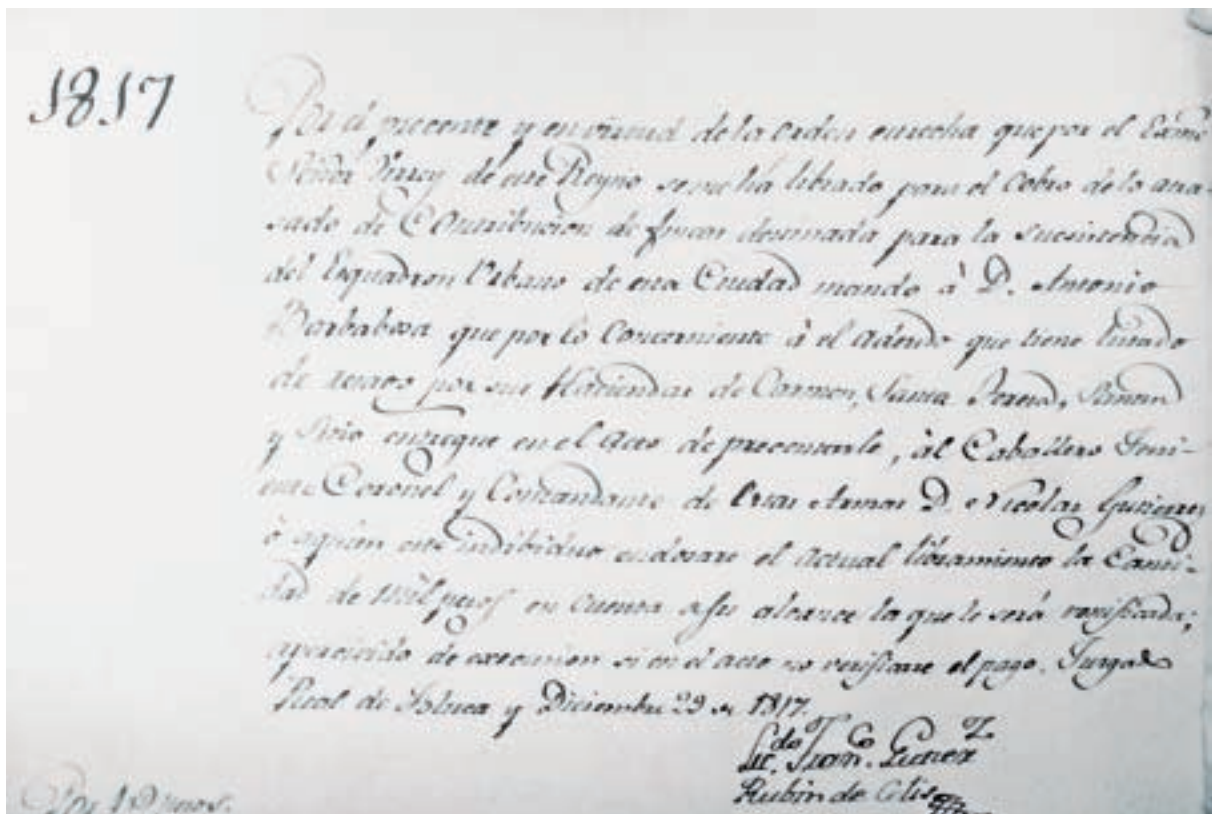 1817
Por el presente y en virtud de la orden estrecha que por el Exmo
Señor Virrey de este Reyno se me ha librado para el Cobro de lo atra-
sado de Contribucion de fincas destinada para la subsistencia
del Esquadron Urbano de esta Ciudad mando à D. Antonio
Barbabosa que por lo Concerniente à el Adeudo que tiene
de rezago por sus Haciendas de Carmen, Santa Teresa,
y entregue en el Acto de presentarle, àl Caballero Teni-
ente Coronel y Comandante de Armas D. Nicolas Gutierrez
ò aquien este indibiduo endosare el Actual libramiento la Canti-
dad de Mil pesos en Cuenta asu alcance la que le será
apercivido de execucion si en el acto no verificare el pago. Juzgado
Real de Toluca y Diciembre 23 de 1817.
Licdo. Juan Gutierrez
Rubin de Celis
Por pesos.